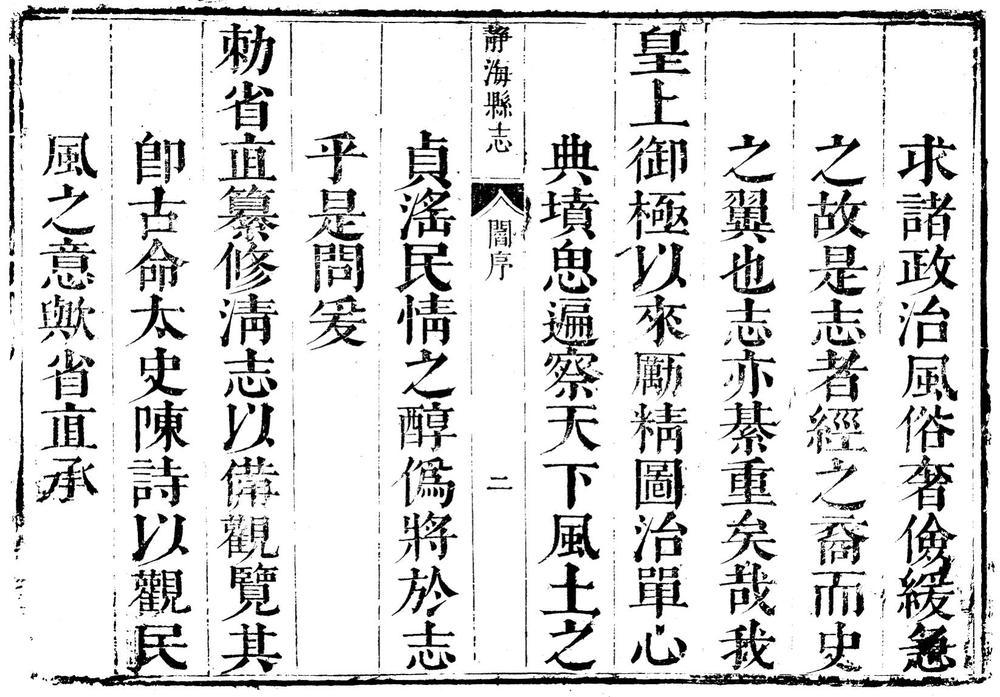 求諸政治風俗奢儉緩急
之故是志者經之裔而史
之翼也志亦綦重矣哉我
皇上御極以來勵精圖治單心
典墳思遍察天下風土之
靜海縣志
閻序
二
貞滛民情之醇僞將於志
乎是問爰
勅省直纂修清志以備觀覽其
卽古命太史陳詩以觀民
風之意歟省直承